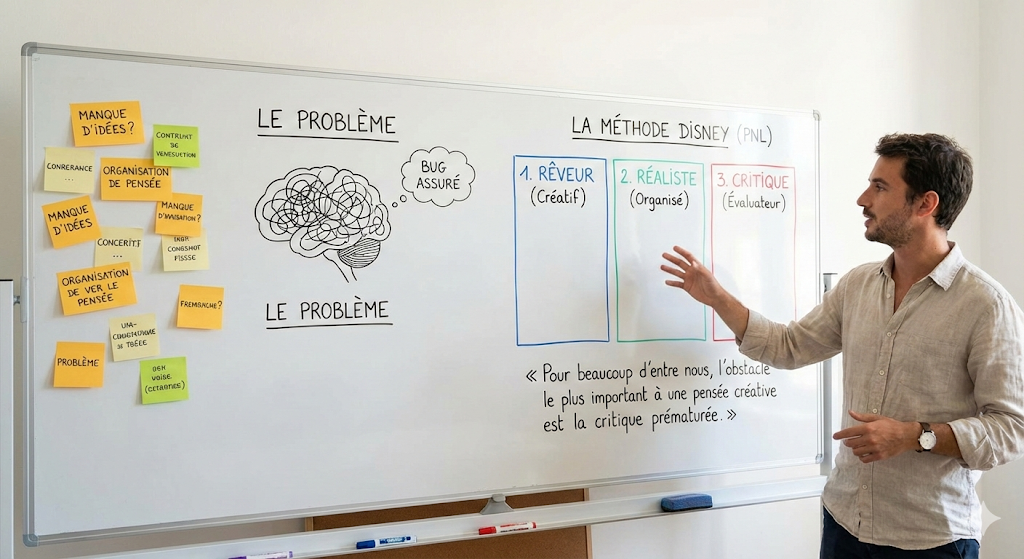 MANQUE
D'IDÉES?
CONTRLINT
DE
VENESUCTION
CONRERANCE
...
ORGANISATION
DE PENSÉE
MANQUE
D'IDÉES
MANQUE
?
CONCERITÉ
...
FISSSE
ORGANISATION
DE VER LE
PENSÉE
FREMBÀCHE?
PROBLÈME
LE PROBLÈME
BUG
ASSURÉ
LE PROBLÈME
LA MÉTHODE DISNEY (PNL)
1. RÊVEUR
(Créatif)
2. RÉALISTE
(Organisé)
3. CRITIQUE
(Évaluateur)
« Pour beaucoup d'entre nous, l'obstacle
le plus important à une pensée créative
est la critique prématurée. »